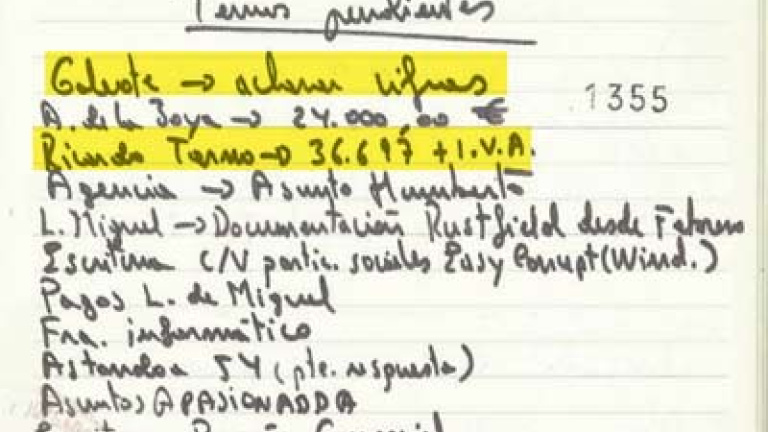 Temas pendientes
Galeote → aclarar cifras
1355
A. de la Joya → 24.000,00 €
Ricardo Tormo → 36.697 + I.V.A.
Agencia → Asunto Humberto
L. Miguel → Documentación Rustfield desde Febrero
Escritura C/V partic. sociales Easy (Wind.)
Pagos L. de Miguel
Fra. informático
Astondoa 54 (pte. respuesta)
Asuntos APASIONADDA